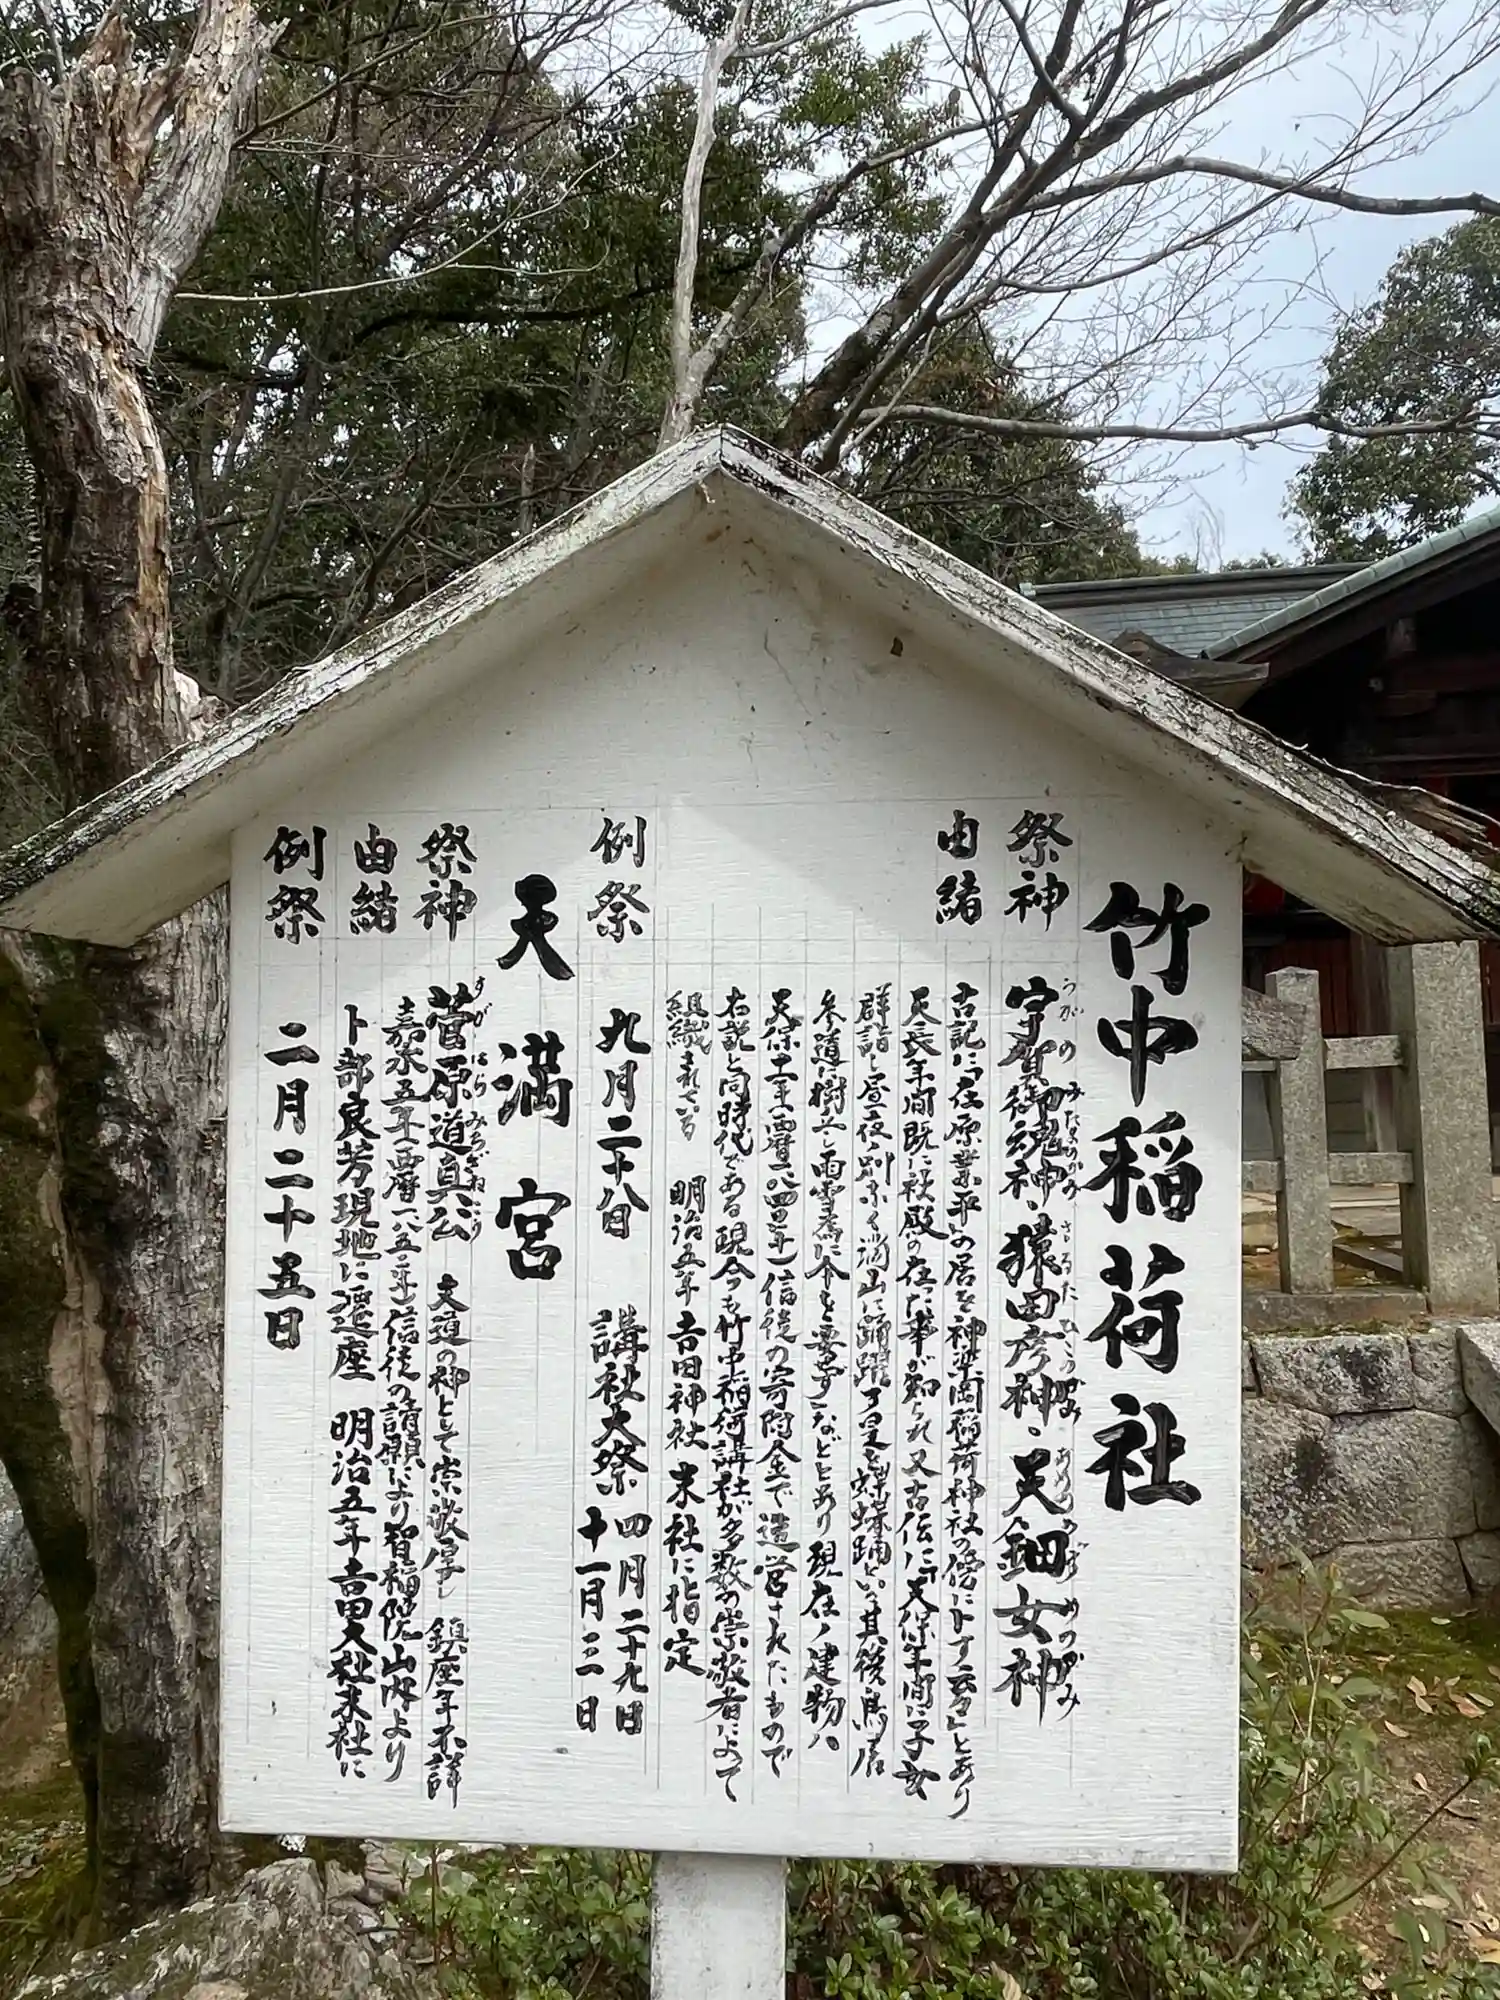 竹中稲荷社
祭神 宇賀御魂神、猿田彦神、天鈿女神
うがのみたまのかみ さるたひこのかみ あめのうずめのかみ
由緒 古記に「在原業平の居を神楽岡稲荷神社の傍に卜す云々」とあり
天長年間既に社殿の在った事が知られ又古伝に「天保年間に子女
群詣し昼夜の別なく満山に踊躍す是を蝶々踊といふ其後鳥居
参道に樹立し雨雪為に傘を要せず」などとあり現在ノ建物ハ
天保十一年(西暦一八四〇年)信徒の寄附金で造営されたもので
右説と同時代である現今も竹中稲荷講社が多数の崇敬者によって
組織されている 明治五年吉田神社末社に指定
例祭 九月二十八日 講社大祭 四月二十九日
十一月三日
天満宮
祭神 菅原道真公 文道の神として崇敬厚し 鎮座年不詳
すがはらみちざねこう
由緒 嘉永五年(西暦一八五二年)信徒の請願により智福院山内より
卜部良芳現地に遷座 明治五年吉田大社末社に
例祭 二月二十五日